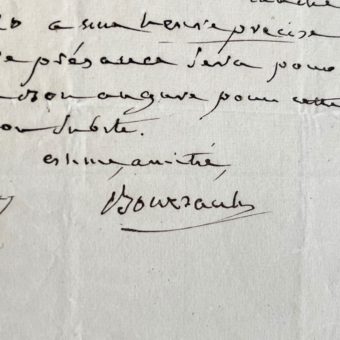 a une heure precise
presence sera pour
bon augure pour cette
subite.
estime, amitié,
Boursault